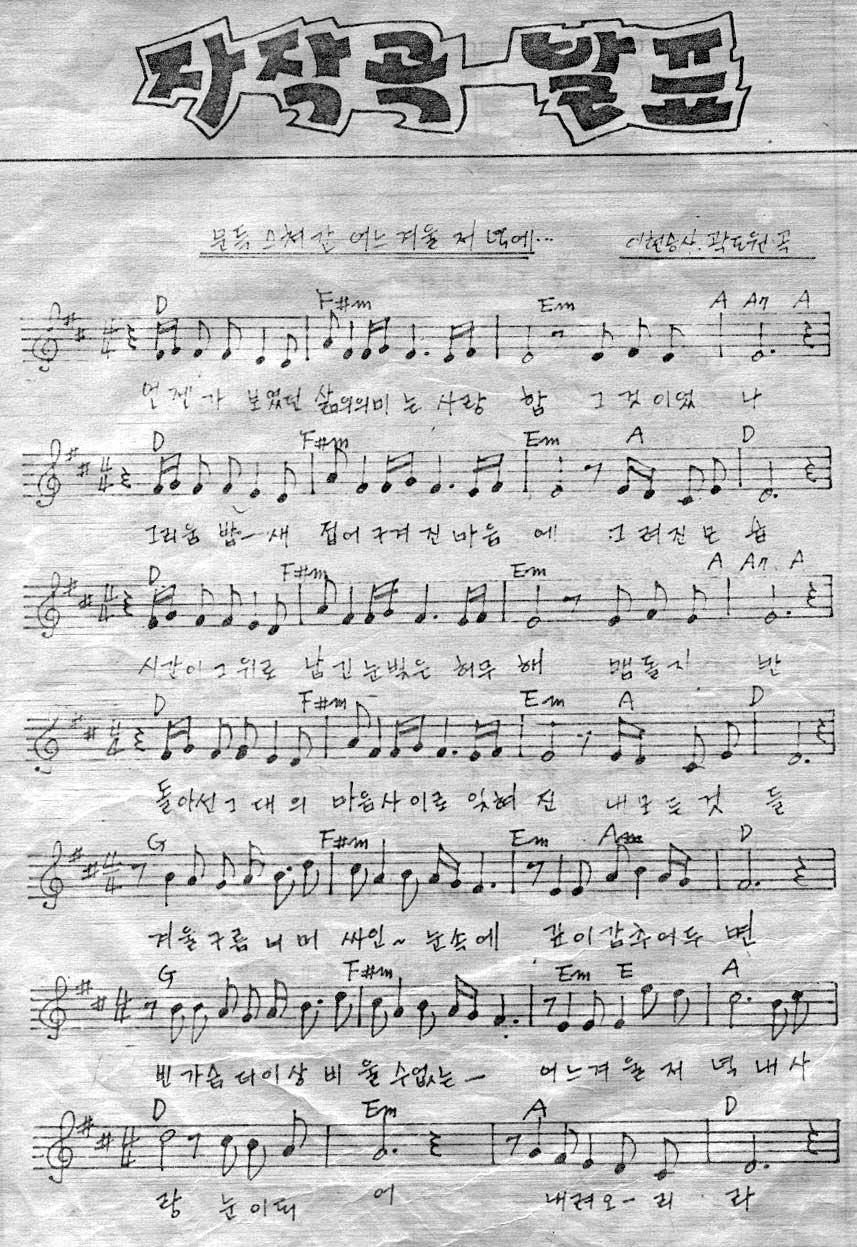 자작곡 발표
문득 스쳐간 어느 겨울 저녁에... 이현승사. 곽도원곡
D F#m Em A A7 A
언젠가 보였던 삶의의미는 사랑 함 그것이었 나
D F#m Em A D
그리움 밤-새 접어 구겨진마음 에 그려진모 습
D F#m Em A A7 A
시간이 그위로 남긴눈빛은 허무 해 맴돌지 만
D F#m Em A D
돌아선그대의 마음사이로 잊혀 진 내모든것 들
G F#m Em A D
겨울구름 너머 싸인~ 눈속에 깊이감추어두 면
G F#m Em E A
빈가슴 더이상 비울수없는- 어느겨울 저녁 내사
D Em A D
랑 눈이되 어 내려오-리 라